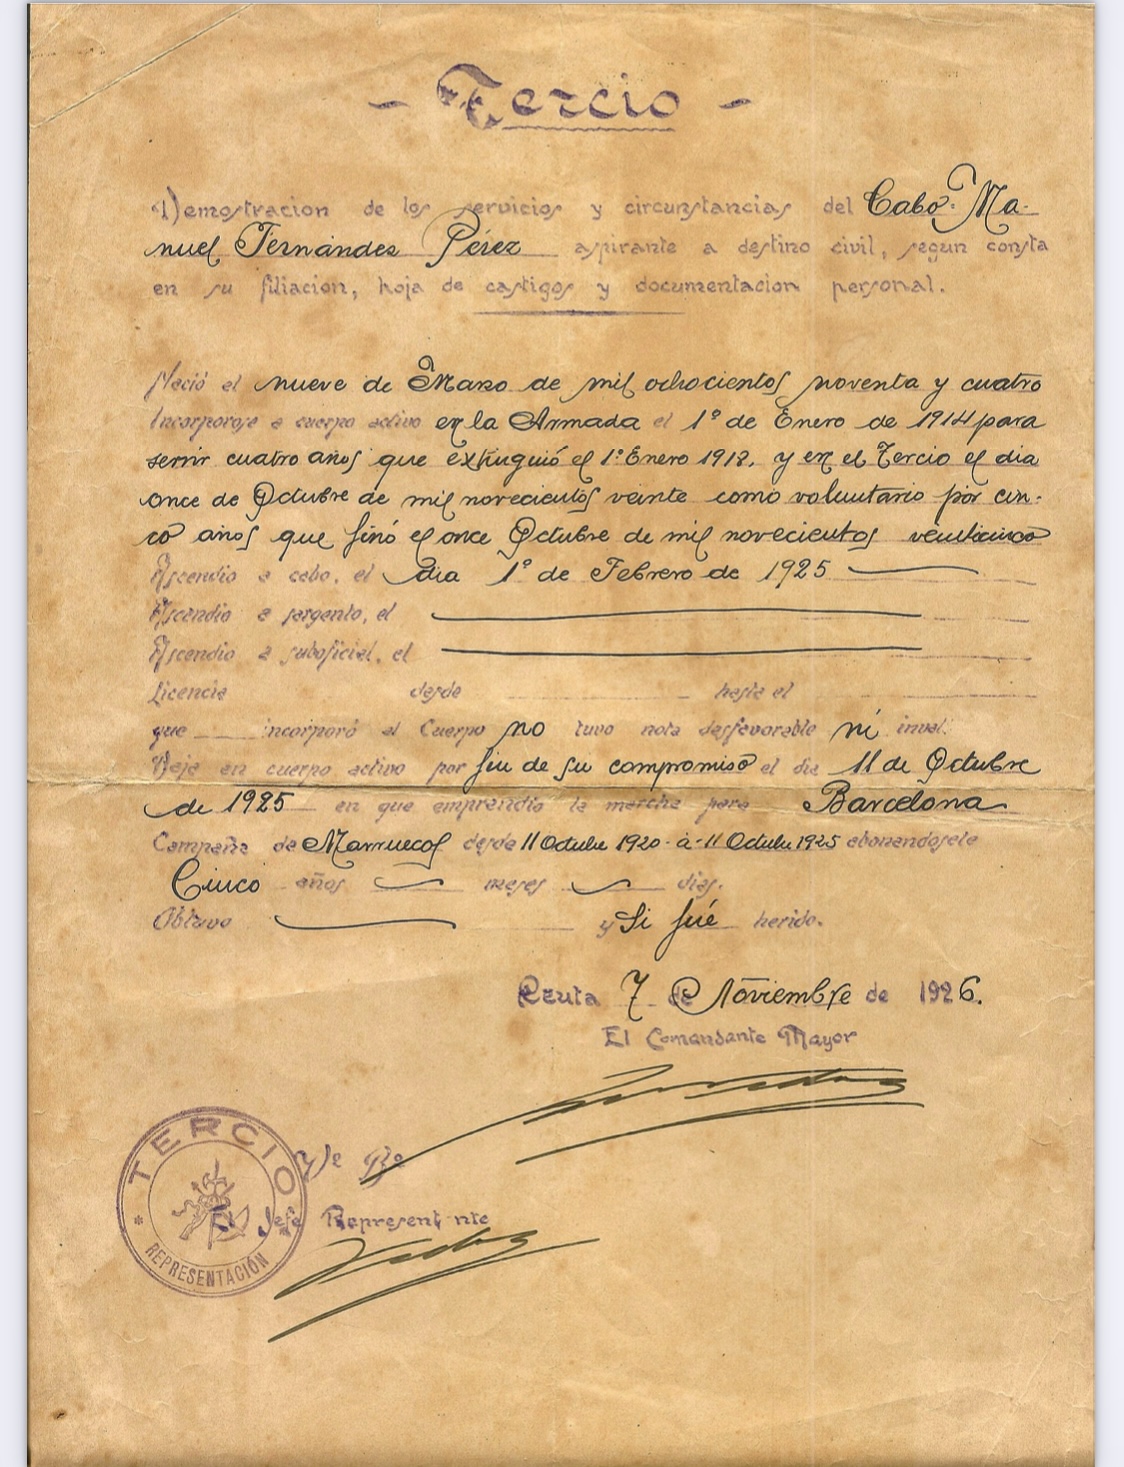 - Tercio -
Demostracion de los servicios y circunstancias del Cabo Ma-
nuel Fernández Pérez aspirante a destino civil, segun consta
en su filiacion, hoja de castigos y documentacion personal.
Nació el nueve de Marzo de mil ochocientos noventa y cuatro
Incorporose a cuerpo activo en la Armada el 1º de Enero de 1914 para
servir cuatro años que extinguió el 1º Enero 1918, y en el Tercio el dia
once de Octubre de mil novecientos veinte como voluntario por cin-
co años que finó el once Octubre de mil novecientos veinticinco
Ascendio a cabo, el dia 1º de Febrero de 1925
Ascendio a sargento, el
Ascendio a suboficial, el
Licencia desde hasta el
que incorporó al Cuerpo no tuvo nota desfavorable ni inval.
Baja en cuerpo activo por fin de su compromiso el dia 11 de Octubre
de 1925 en que emprendio la marcha para Barcelona
Campaña de Marruecos desde 11 Octubre 1920 a 11 Octubre 1925 abonandosele
Cinco años meses dias.
Obtuvo y Si fué herido.
Ceuta 7 de Noviembre de 1926.
El Comandante Mayor
Vº Bº
El Jefe Representante
TERCIO
REPRESENTACIÓN